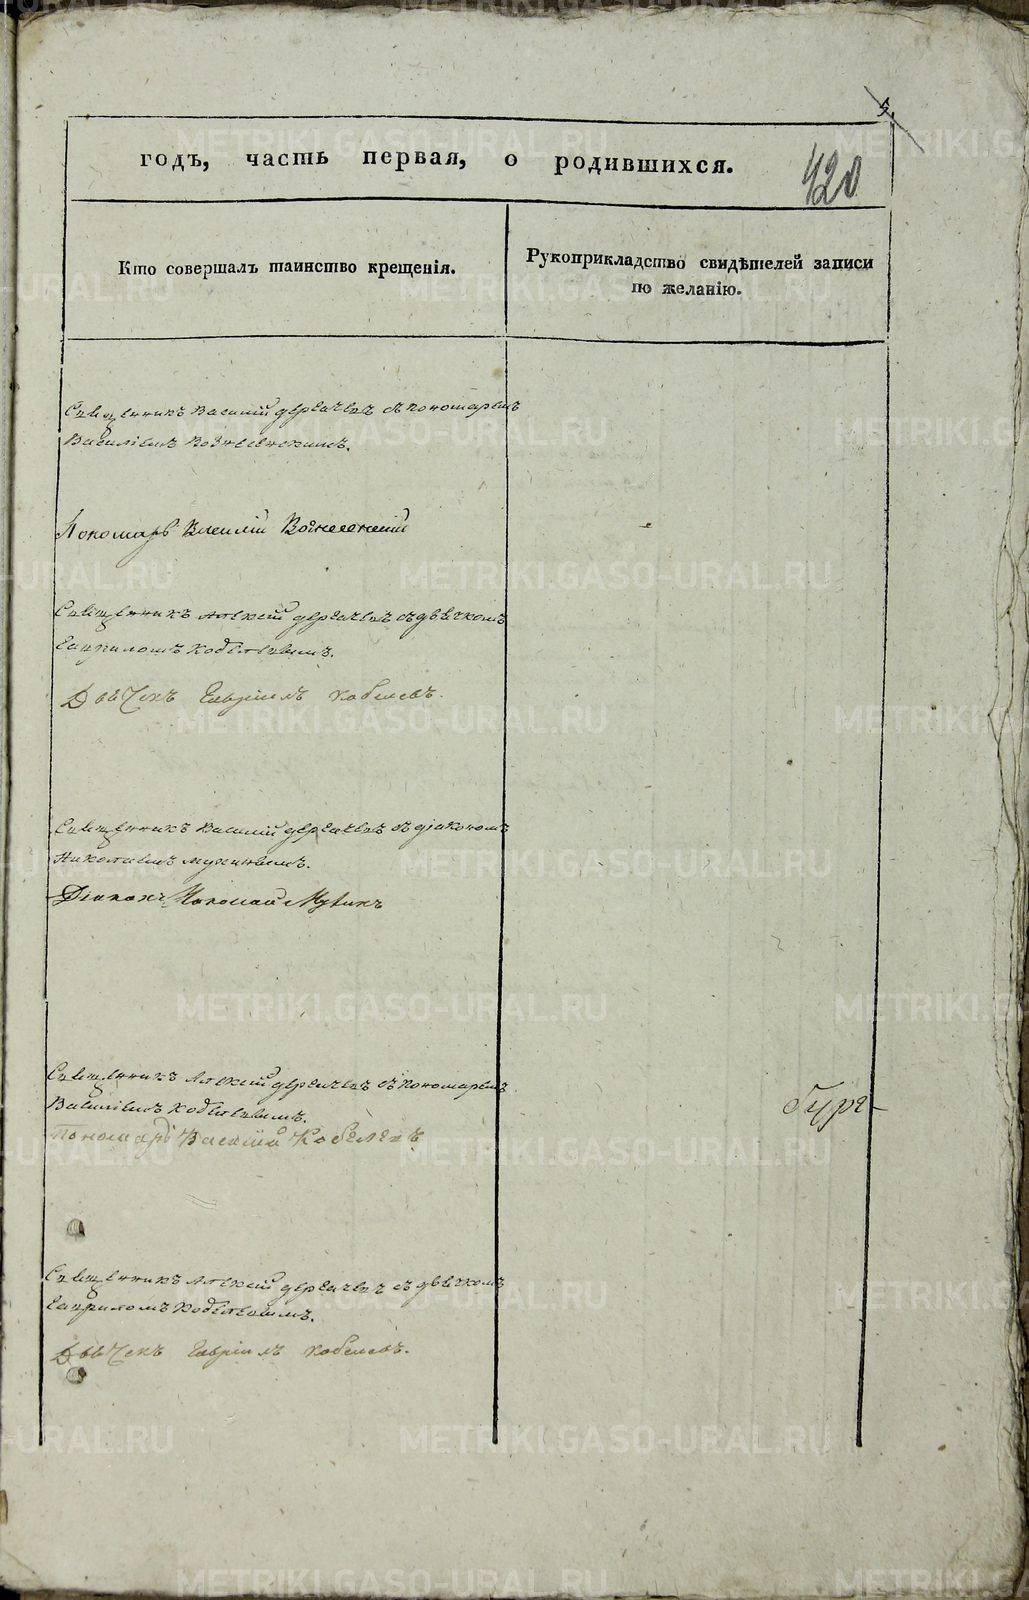 5.
годъ, часть первая, о родившихся.
420
Кто совершалъ таинство крещенія.
Рукоприкладство свидѣтелей записи
по желанію.
Священникъ Василій Дергачевъ съ пономаремъ
Василіемъ Вознесенскимъ.
Пономарь Василій Вознесенскій
Священникъ Алексій Дергачевъ съ дьячкомъ
Гавриломъ Кобелевымъ.
Дьячекъ Гавріилъ Кобелевъ.
Священникъ Василій Дергачевъ съ діакономъ
Николаемъ Мухинымъ.
Діаконъ Николай Мухинъ
Священникъ Алексій Дергачевъ съ пономаремъ
Василіемъ Кобелевымъ.
Пономарь Василій Кобелевъ
Священникъ Алексій Дергачевъ съ дьячкомъ
Гавриломъ Кобелевымъ.
Дьячекъ Гавріилъ Кобелевъ.
METRIKI.GASO-URAL.RU